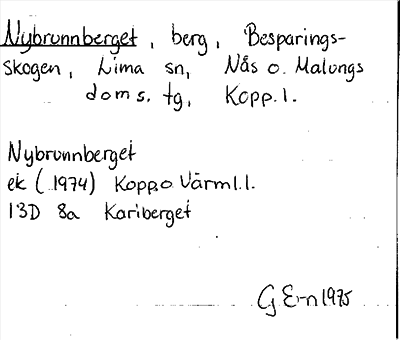 Nybrunnberget, berg, Besparings-
skogen, Lima sn, Nås o. Malungs
doms. tg, Kopp. l.
Nybrunnberget
ek (1974) Kopp. o Värml. l.
13D 8a Kariberget
G E-n 1975